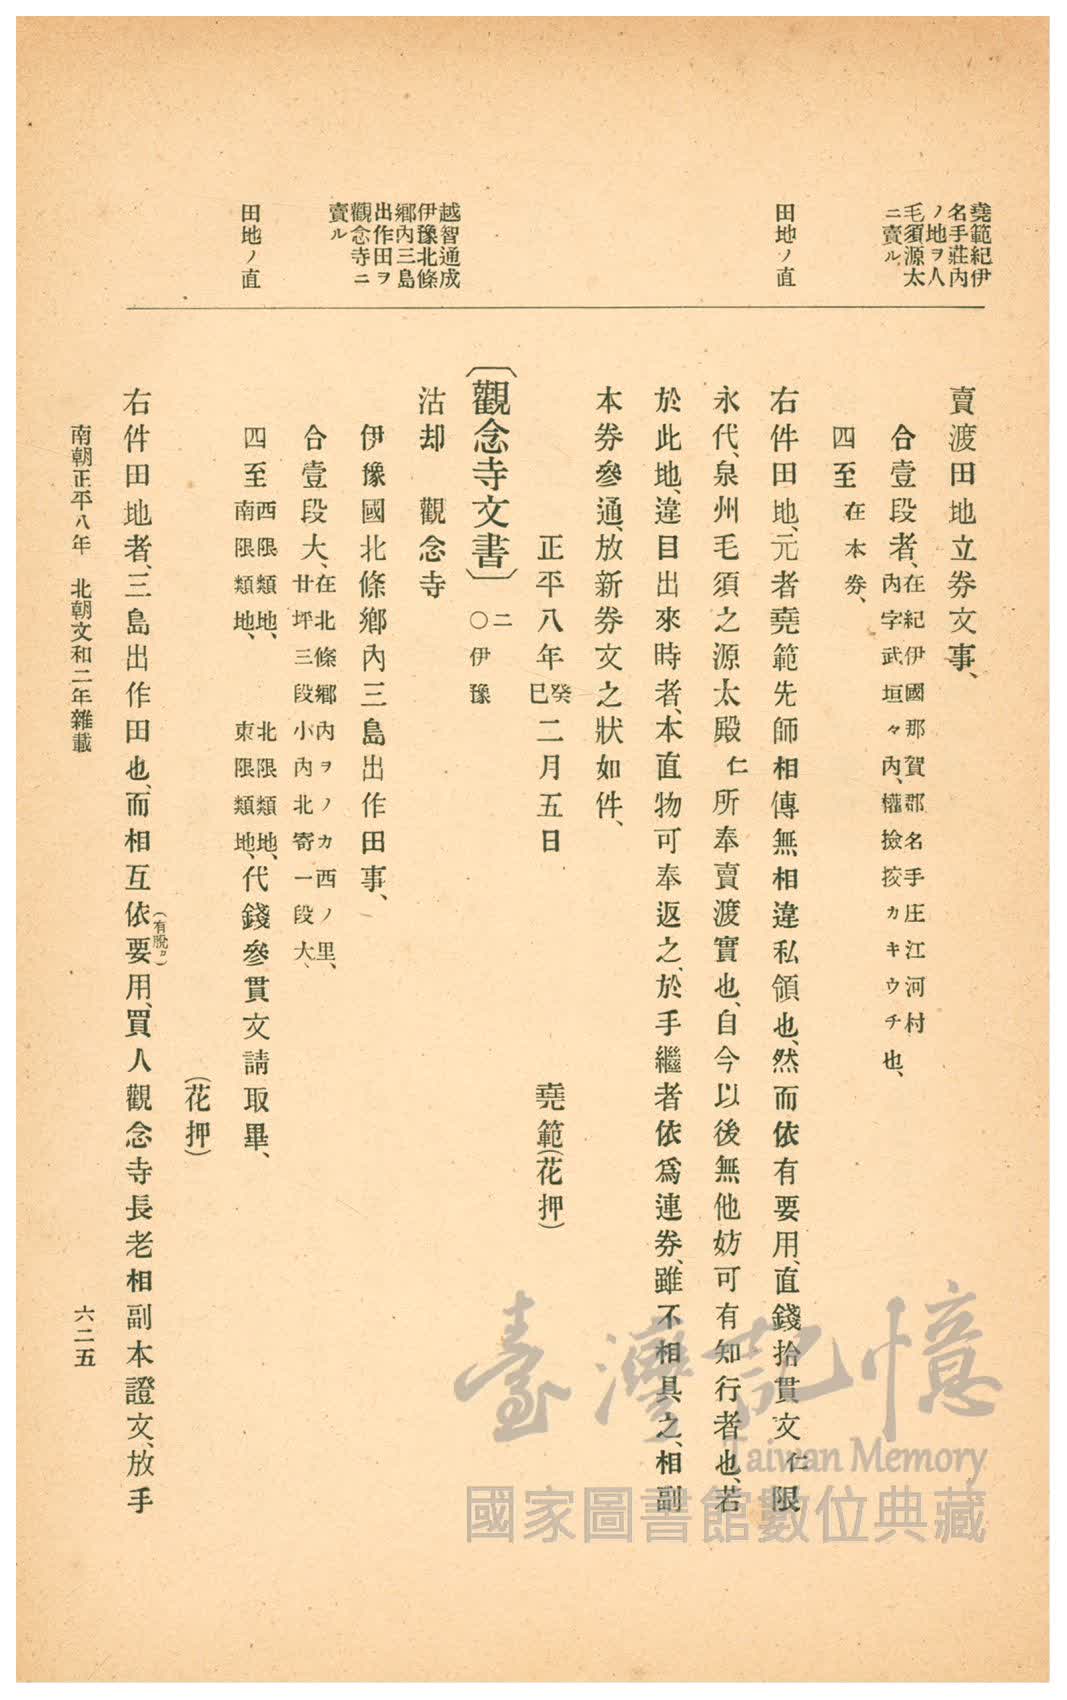 堯範紀伊
名手莊内
ノ地ヲ人
毛須源太
ニ賣ル
田地ノ直
越智通成
伊豫北條
鄕内三島
出作田ヲ
觀念寺ニ
賣ル
田地ノ直
賣渡田地立券文事、
合壹段者、在紀伊國那賀郡名手庄江河村
内字武垣々内、權撿挍カキウチ也、
四至 在本券、
右件田地、元者堯範先師相傳無相違私領也、然而依有要用、直錢拾貫文仁限
永代、泉州毛須之源太殿仁所奉賣渡實也、自今以後無他妨可有知行者也、若
於此地、違目出來時者、本直物可奉返之、於手繼者依爲連券、雖不相具之、相副
本券參通、放新券文之狀如件、
正平八年癸巳二月五日 堯範(花押)
〔觀念寺文書〕 二 ○伊豫
沽却 觀念寺
伊豫國北條鄕内三島出作田事、
合壹段大、在北條鄕内ヲノカ西ノ里、
廿坪三段小内北寄一段大、
四至 西限類地、 北限類地、
南限類地、 東限類地、代錢參貫文請取畢、
(花押)
右件田地者、三島出作田也、而相互依(有脫カ)要用、買人觀念寺長老相副本證文、放手
南朝正平八年 北朝文和二年雜載 六二五
臺灣記憶
Taiwan Memory
國家圖書館數位典藏